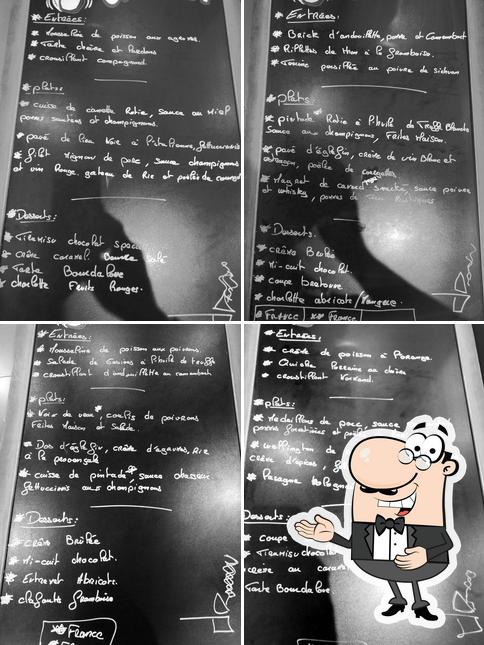 Entrées:
* Mousseline de poisson aux agrumes.
* Tarte chèvre et lardons
* croustillant campagnard.
* plats:
* cuisse de canette Rotie, sauce au miel
pommes sautées et champignons.
* pavé de lieu Noir à l'italienne, fettuccinis
* filet mignon de porc, sauce champignons
et vin Rouge. gateau de Riz et poêlée de
Desserts:
* Tiramisu chocolat
* crème caramel salé
* Tarte Bourdaloue
* charlotte Fruits Rouges.
* Entrées:
* Brick d'andouillette, pomme et Camembert
* Rillettes de thon à la framboise.
* Terrine persillée au poivre de sichuan
* plats:
* pintade Rotie à l'huile de Truffe Blanche
sauce aux champignons, frites Maison.
* pavé d'églefin, crème de vin Blanc et
estragon, poêlée de courgettes
* Magret de canard sauce poivre
et whisky, pommes de
* Desserts.
* crème Brûlée
* Mi-cuit chocolat.
* coupe bretonne.
* charlotte abricots/
* France France
* Entrées:
* Mousseline de poisson aux poivrons.
* Salade de à l'huile de truffe
* croustillant d'andouillette au camembert
* plats:
* Noix de veau, coulis de poivrons
frites Maison et Salade.
* Dos d'églefin, crème d'agrumes, Riz
à la provençale
* cuisse de pintade, sauce
fettuccinis aux champignons
* Desserts:
* crème Brûlée
* Mi-cuit chocolat.
* Entremet Abricots.
* clafoutis framboise
* France
* Entrées:
* crème de poisson à l'orange.
* Quiche au chèvre
* croustillant Normand.
* plats:
* Médaillons de porc, sauce
pommes forestières et
* wellington de
crème d'épices,
* lasagne
Desserts:
* coupe
* Tiramisu chocolat
crème au caramel
Tarte Bourdaloue